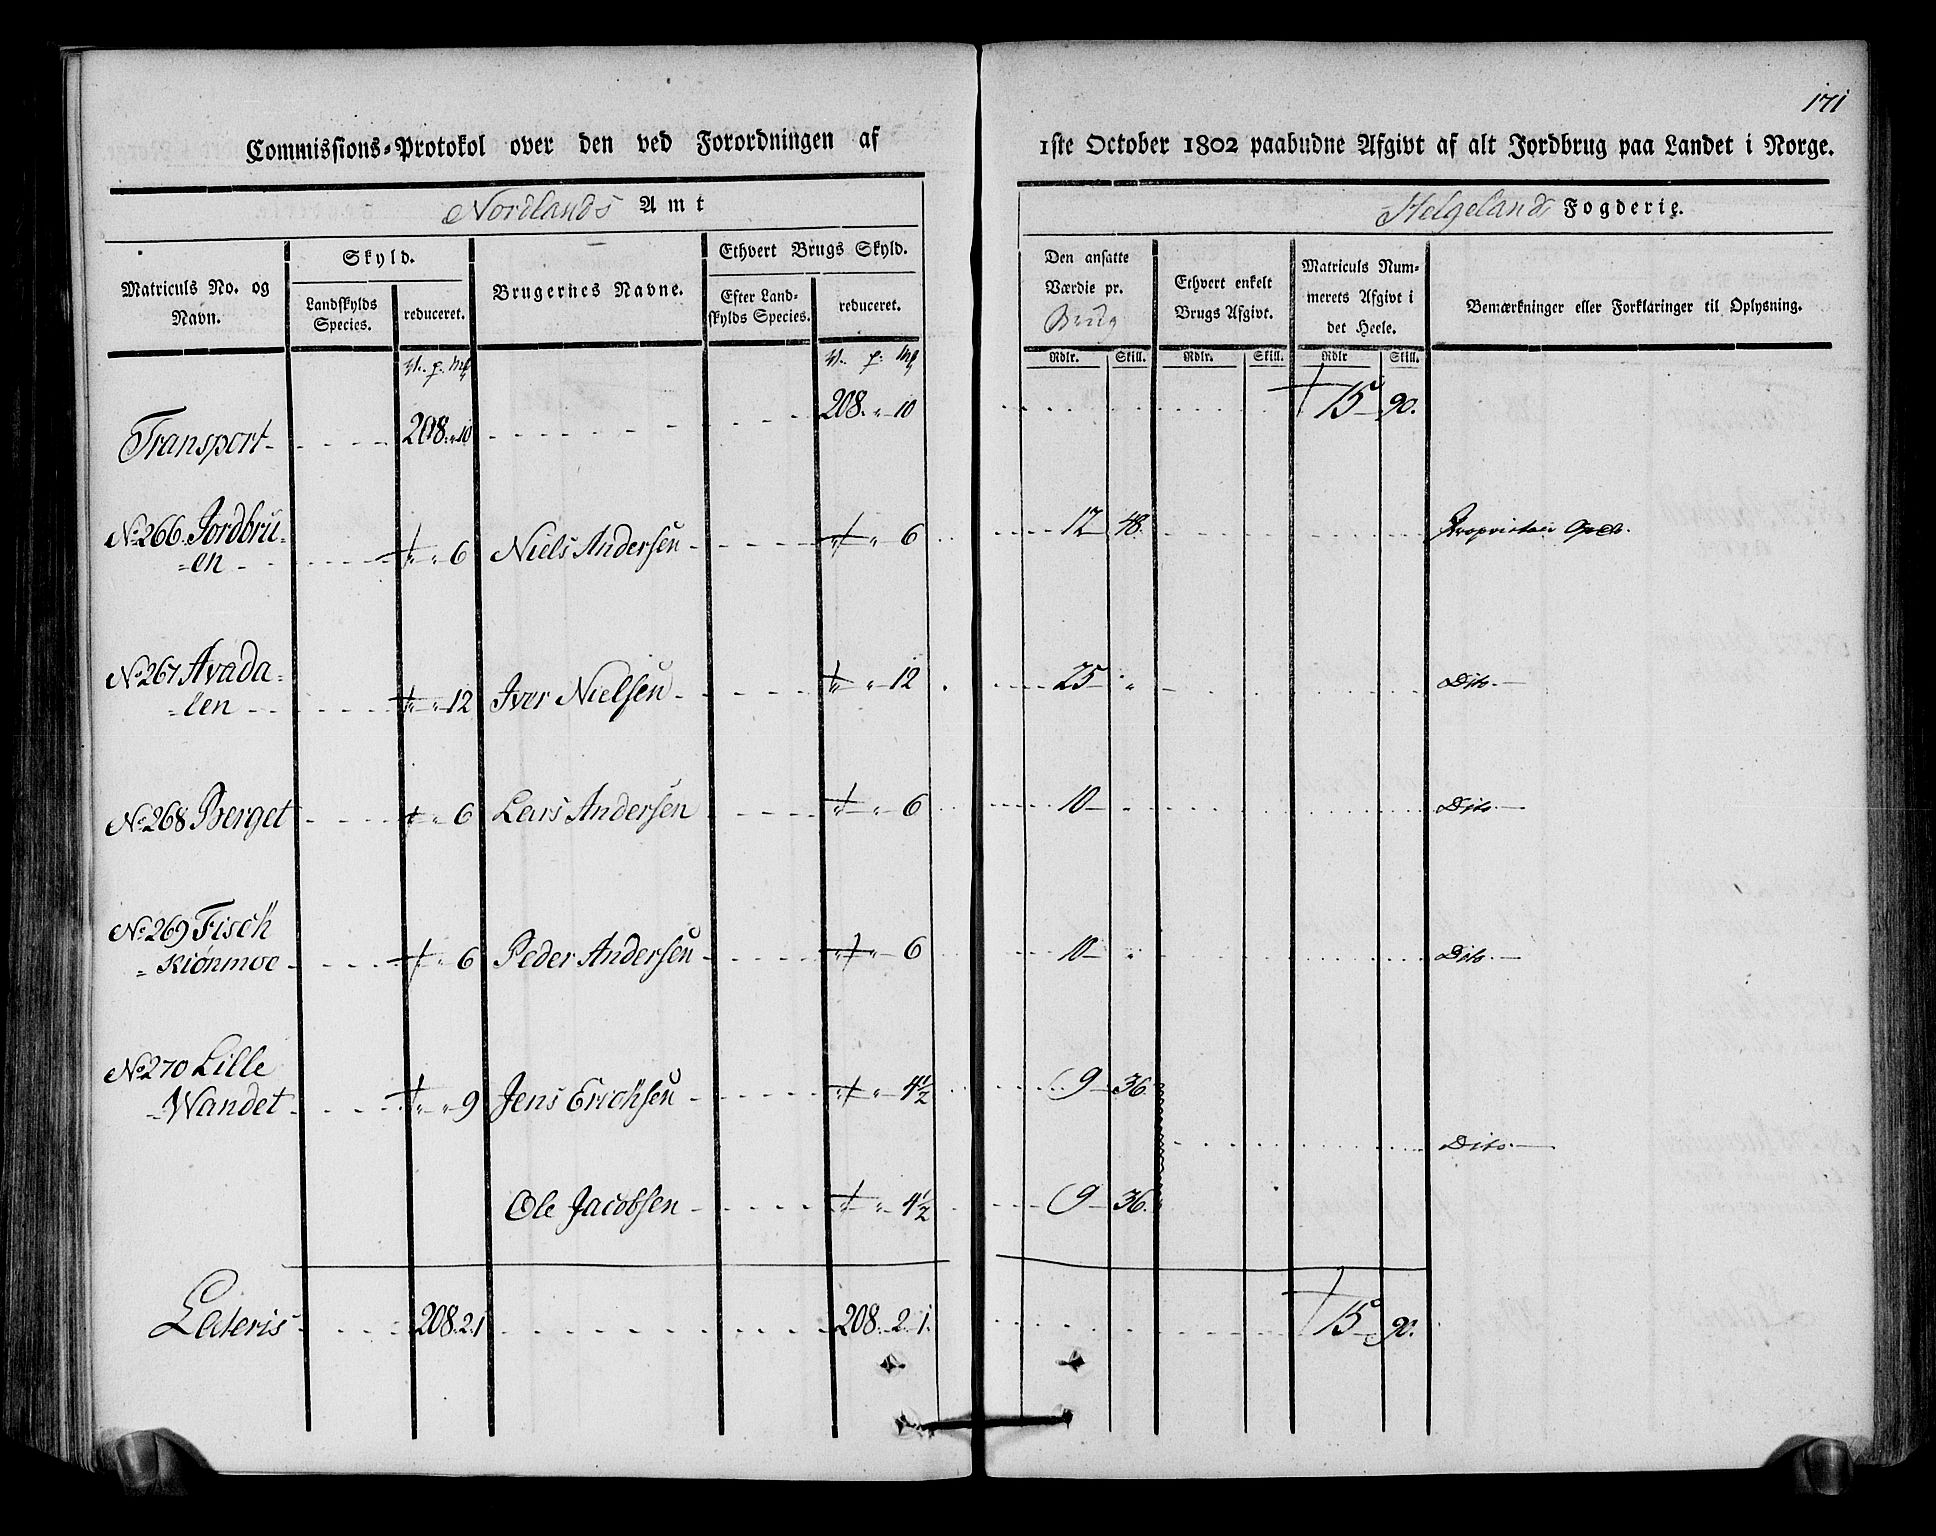 171
Commissions-Protokol over den ved Forordningen af 1ste October 1802 paabudne Afgivt af alt Jordbrug paa Landet i Norge.
Nordlands Amt
Helgelands Fogderie.
Matriculs No. og Navn.
Skyld.
Landskylds Species.
reduceret.
Brugernes Navne.
Ethvert Brugs Skyld.
Efter Landskylds Species.
reduceret.
Den ansatte Værdie pr. Brug
Ethvert enkelt Brugs Afgivt.
Matriculs Nummerets Afgivt i det Heele.
Bemærkninger eller Forklaringer til Oplysning.
Rdlr. Skill. Rdlr. Skill. Rdlr Skill.
Transport 208. " 10 208. " 10 15 90.
No. 266 Jordbru-
=en " 6 Niels Andersen " 6 12 48. Proprietair
No. 267 Avada-
=len " 12 Iver Nielsen " 12 25 " Dito.
No. 268 Berget " 6 Lars Andersen " 6 10 " Dito.
No. 269 Fisch
=Kiønmoe " 6 Peder Andersen " 6 10 " Dito.
No. 270 Lille
=Wandet " 9 Jens Erichsen " 4½ 9 36.
Dito.
Ole Jacobsen " 4½ 9 36.
Lateris 208. 2. 1 208. 2. 1. 15 90.